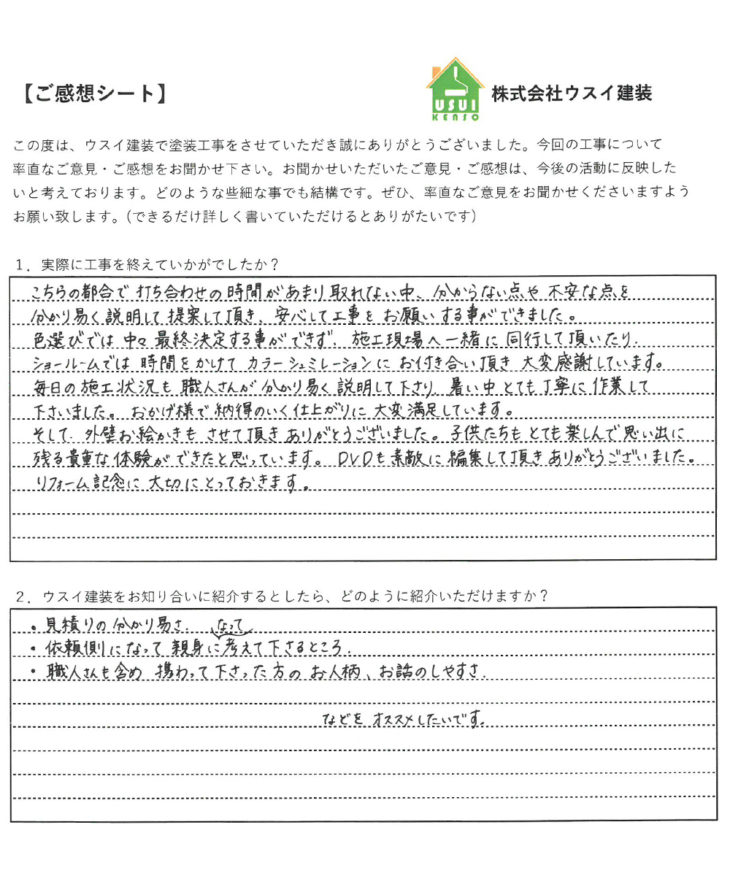 【ご感想シート】
USUI
KENSO
株式会社ウスイ建装
この度は、ウスイ建装で塗装工事をさせていただき誠にありがとうございました。今回の工事について
率直なご意見・ご感想をお聞かせ下さい。お聞かせいただいたご意見・ご感想は、今後の活動に反映した
いと考えております。どのような些細な事でも結構です。ぜひ、率直なご意見をお聞かせくださいますよう
お願い致します。(できるだけ詳しく書いていただけるとありがたいです)
1．実際に工事を終えていかがでしたか？
こちらの都合で打ち合わせの時間があまり取れない中、分からない点や不安な点を
分かり易く説明して提案して頂き、安心して工事をお願いする事ができました。
色選びでは中々最終決定する事ができず、施工現場へ一緒に同行して頂いたり、
ショールームでは時間をかけてカラーシュミレーションにお付き合い頂き大変感謝しています。
毎日の施工状況も職人さんが分かり易く説明して下さり、暑い中とても丁寧に作業して
下さいました。おかげ様で納得のいく仕上がりに大変満足しています。
そして、外壁お絵かきもさせて頂きありがとうございました。子供たちもとても楽しんで思い出に
残る貴重な体験ができたと思っています。DVDも素敵に編集して頂きありがとうございました。
リフォーム記念に大切にとっておきます。
2．ウスイ建装をお知り合いに紹介するとしたら、どのように紹介いただけますか？
・見積りの分かり易さ、
なって
・依頼側になって親身に考えて下さるところ、
・職人さんも含め携わって下さった方のお人柄、お話のしやすさ、
などをオススメしたいです。